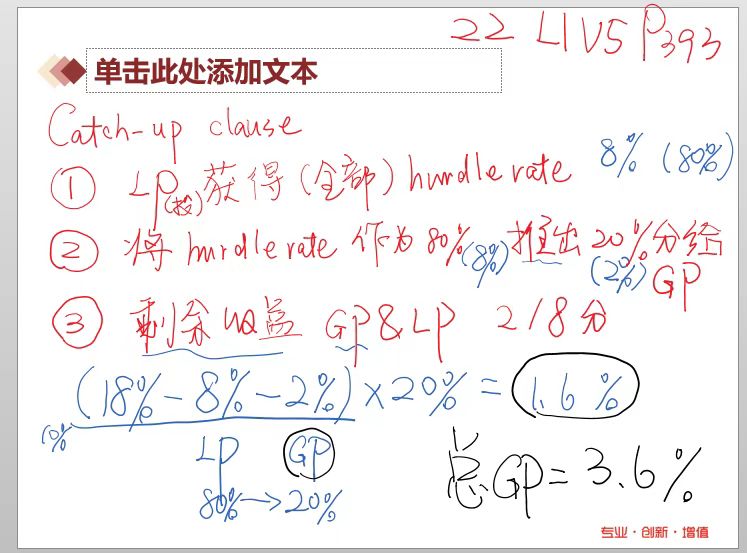 22 L1V5 P393
单击此处添加文本
Catch-up clause
8% (80%)
① LP(投)获得(全部)hurdle rate
② 将 hurdle rate 作为 80%(8%)推出 20%分给
(2%) GP
③ 剩余收益 GP & LP 2/8分
(18%-8%-2%)×20% = 1.6%
10%
LP GP
80%→20%
总GP=3.6%
专业·创新·增值